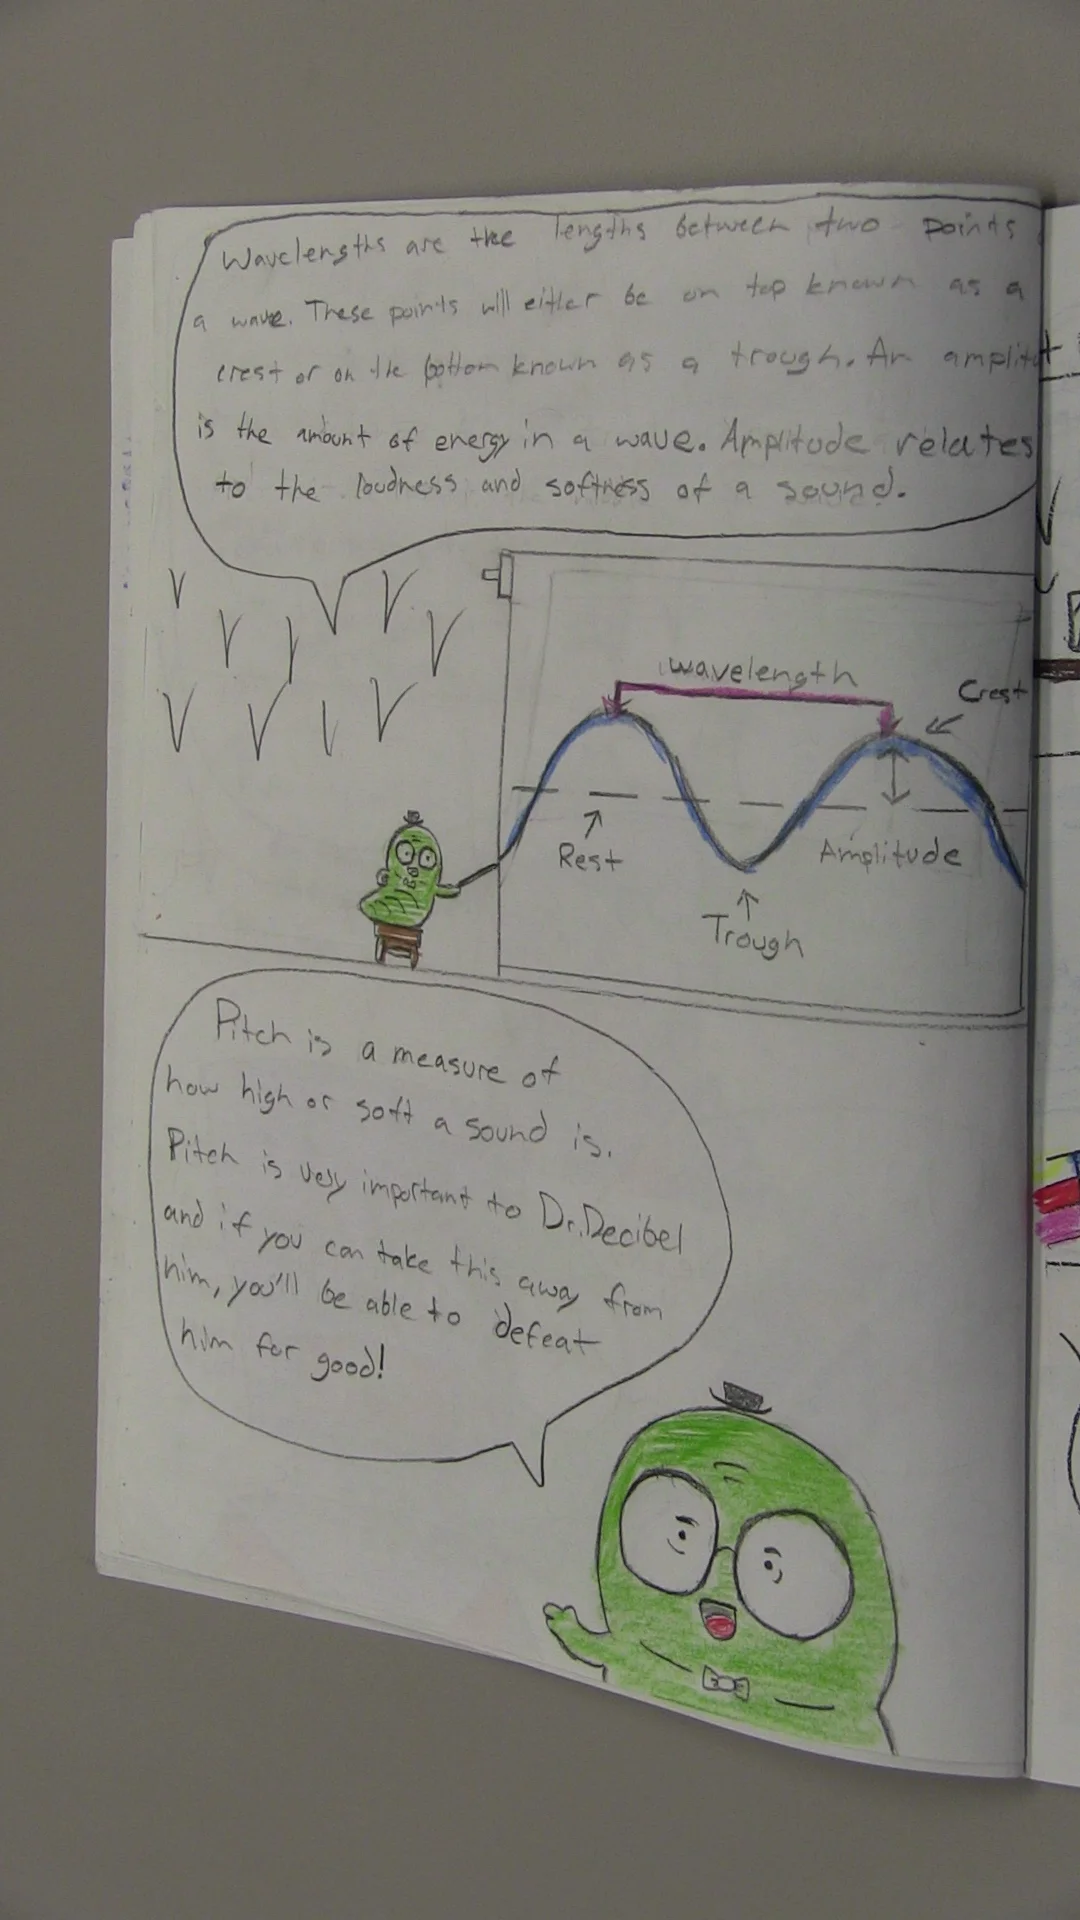 Wavelengths are the lengths between two points
a wave. These points will either be on top known as a
crest or on the bottom known as a trough. An amplitu
is the amount of energy in a wave. Amplitude relates
to the loudness and softness of a sound.
wavelength
Crest
Rest
Amplitude
Trough
Pitch is a measure of
how high or soft a sound is.
Pitch is very important to Dr. Decibel
and if you can take this away from
him, you'll be able to defeat
him for good!